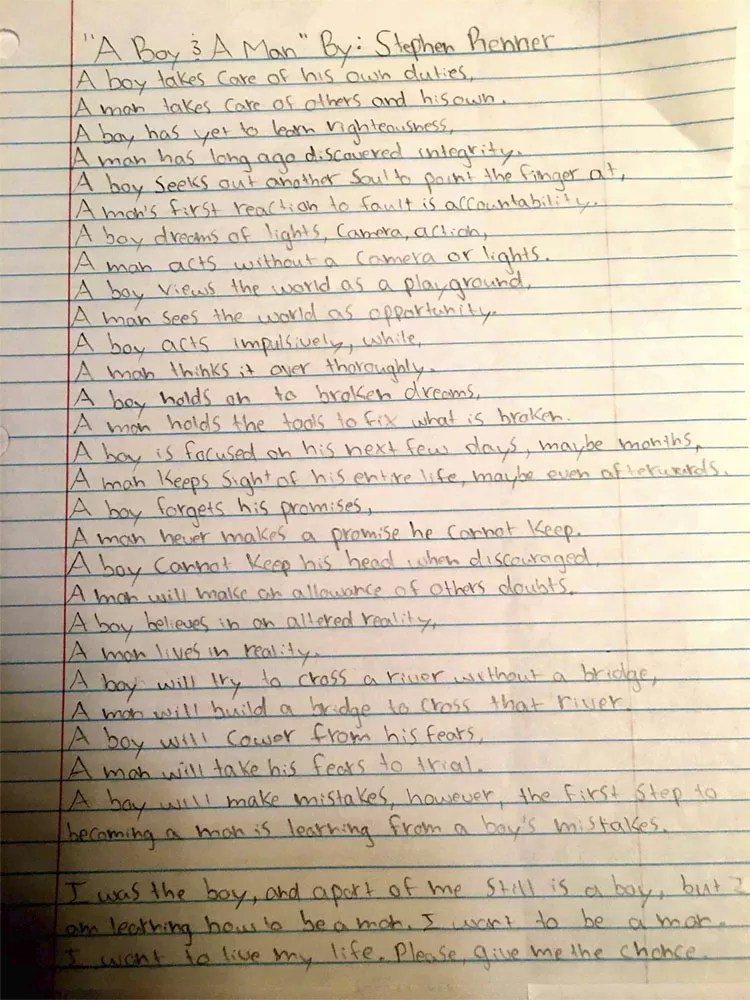 "A Boy & A Man" By: Stephen Renner
A boy takes care of his own duties,
A man takes care of others and his own.
A boy has yet to learn righteousness,
A man has long ago discovered integrity.
A boy seeks out another soul to point the finger at,
A man's first reaction to fault is accountability.
A boy dreams of lights, camera, action,
A man acts without a camera or lights.
A boy views the world as a playground,
A man sees the world as opportunity.
A boy acts impulsively, while,
A man thinks it over thoroughly.
A boy holds on to broken dreams,
A man holds the tools to fix what is broken.
A boy is focused on his next few days, maybe months,
A man keeps sight of his entire life, maybe even afterwards.
A boy forgets his promises,
A man never makes a promise he cannot keep.
A boy cannot keep his head when discouraged,
A man will make an allowance of others doubts.
A boy believes in an altered reality,
A man lives in reality.
A boy will try to cross a river without a bridge,
A man will build a bridge to cross that river.
A boy will cower from his fears,
A man will take his fears to trial.
A boy will make mistakes, however, the first step to
becoming a man is learning from a boy's mistakes.
I was the boy, and apart of me still is a boy, but I
am learning how to be a man. I want to be a man.
I want to live my life. Please, give me the chance.